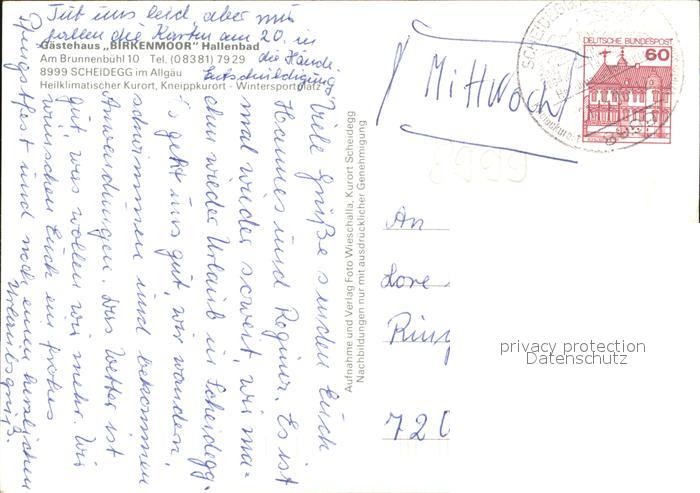 Tut uns leid, aber mir
fallen die Karten am 20. in
die Hände
Entschuldigung
Gästehaus „BIRKENMOOR" Hallenbad
Am Brunnenbühl 10 Tel. (08381) 7929
8999 SCHEIDEGG im Allgäu
Heilklimatischer Kurort, Kneippkurort - Wintersportplatz
Mittwoch
DEUTSCHE BUNDESPOST
60
SCHEIDEGG
8999
Viele Grüße senden Euch
Hannes und Regina. Es ist
mal wieder soweit, wir ma-
chen wieder Urlaub in Scheidegg.
Es geht uns gut, wir wandern,
schwimmen und bekommen
Anwendungen. Das Wetter ist
gut was wollen wir mehr. Wir
wünschen Euch ein frohes
Pfingstfest und noch einen herzlichen
Urlaubsgruß.
Aufnahme und Verlag Foto Wieschalla, Kurort Scheidegg
Nachbildungen nur mit ausdrücklicher Genehmigung
An
Lore
Ring
720
privacy protection
Datenschutz